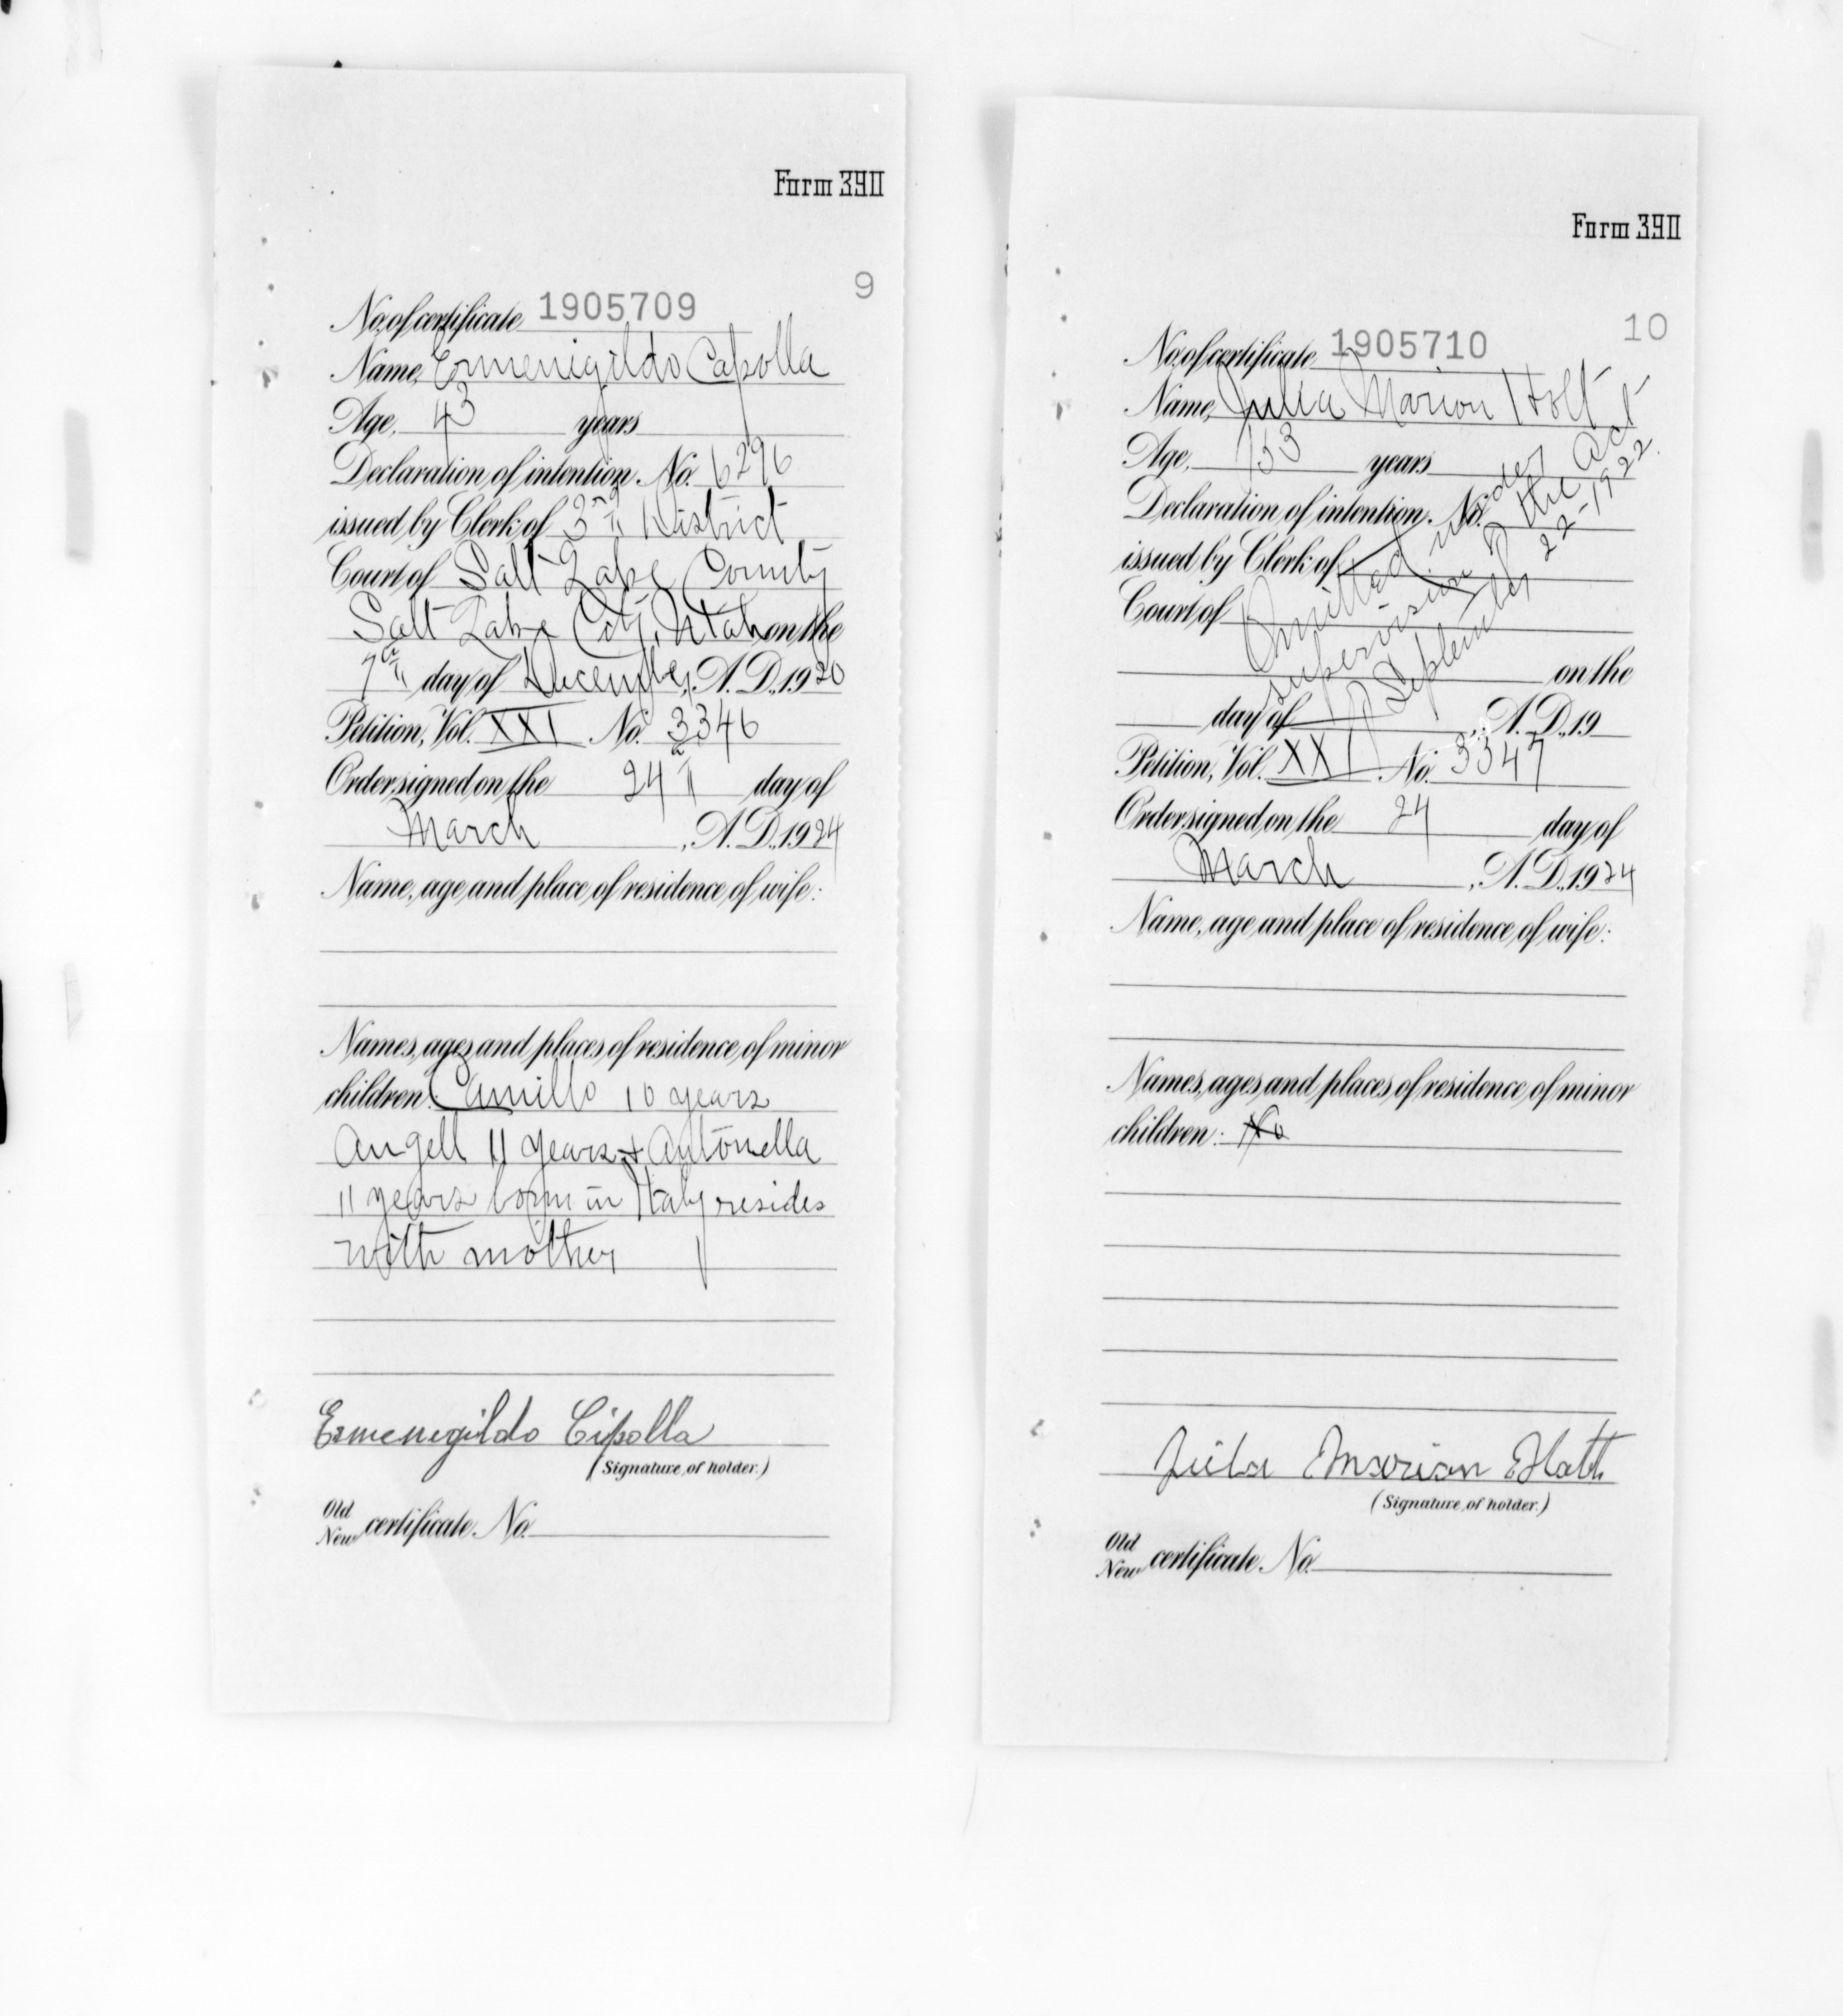 Form 390
9
No. of certificate, 1905709
Name, Ermenigildo Capolla
Age, 43 years
Declaration of intention, No. 6296
issued by Clerk of 3rd District
Court of Salt Lake County
Salt Lake City, Utah on the
7th day of December, A.D., 1920
Petition, Vol. XXI No. 3346
Order signed on the 24th day of
March, A.D., 1924
Name, age, and place of residence of wife:
Names, ages, and places of residence of minor
children: Camillo 10 years
Angell 11 years + Antonella
11 years born in Italy resides
with mother
Ermenegildo Cipolla
(Signature of holder.)
Old
New certificate, No.
Form 390
10
No. of certificate, 1905710
Name, Julia Marion Holt
Age, 53 years
Declaration of intention, No.
issued by Clerk of
Court of
on the
day of , A.D., 19
Omitted under
supervision of the Act
September 22-1922.
Petition, Vol. XXI No. 3347
Order signed on the 24 day of
March, A.D., 1924
Name, age, and place of residence of wife:
Names, ages, and places of residence of minor
children: No
Marian
(Signature of holder.)
Old
New certificate, No.